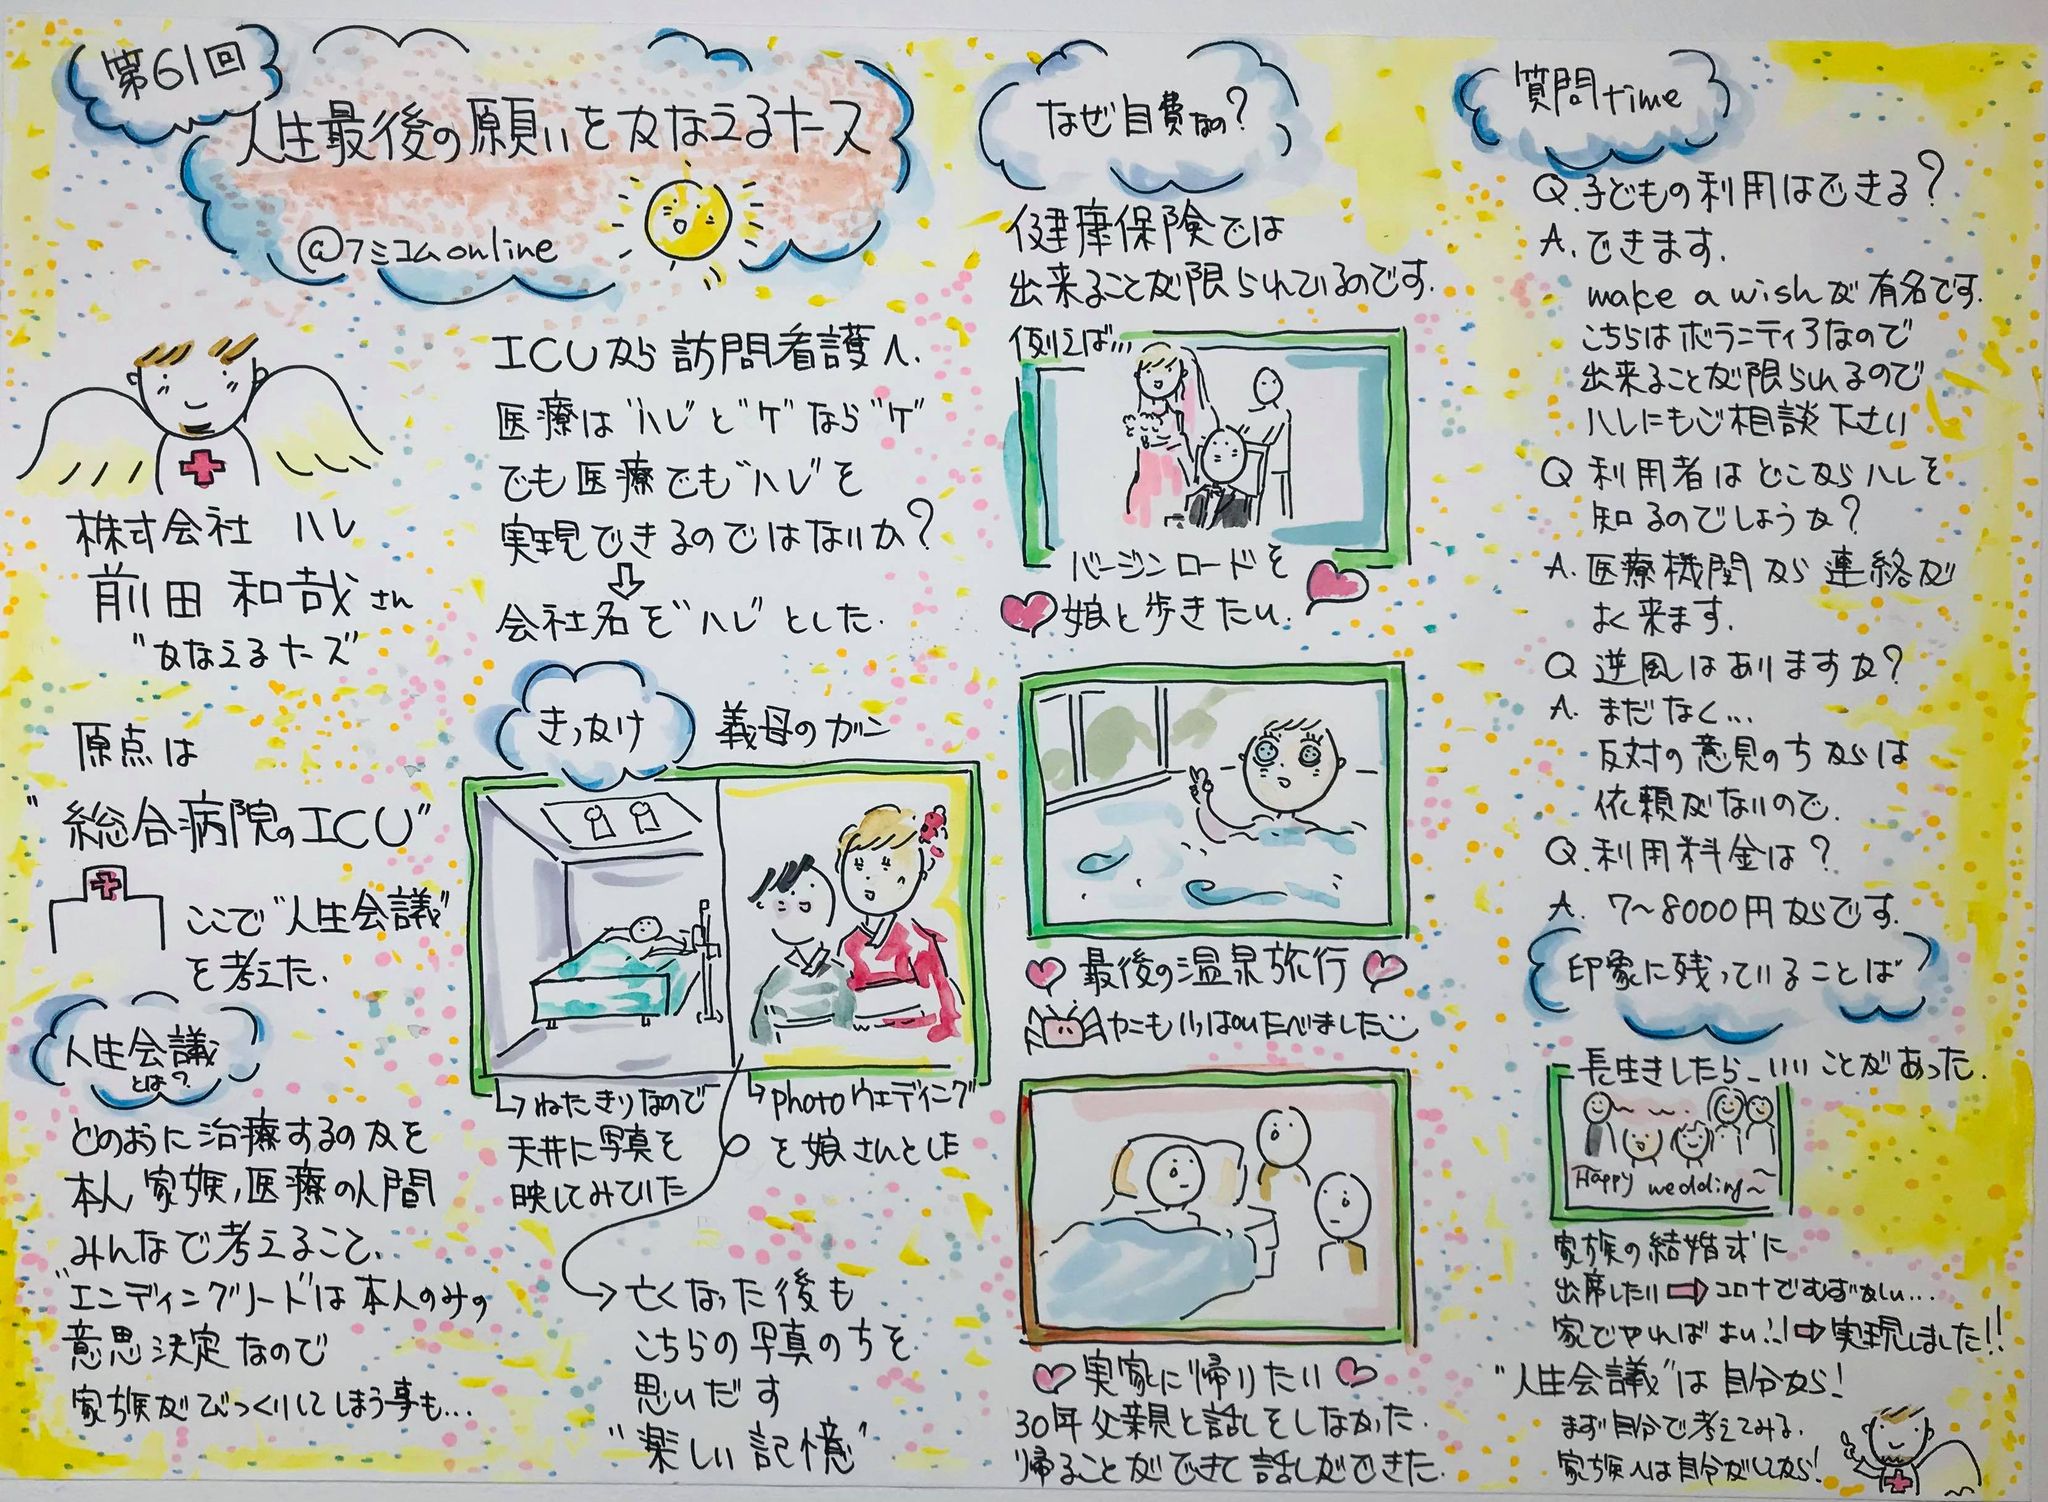 第61回
人生最後の願いをかなえるナース
@フミコムonline
株式会社 ハレ
前田 和哉さん
"かなえるナーズ"
原点は
"総合病院のICU"
ここで"人生会議"
を考えた.
人生会議
とは?
どのように治療するのかを
本人,家族,医療の人間
みんなで考えること.
"エンディングノート"は本人のみの
意思決定なので
家族がびっくりしてしまう事も...
ICUから訪問看護へ.
医療は"ハレ"と"ケ"なら"ケ"
でも医療でも"ハレ"を
実現できるのではないか?
会社名を"ハレ"とした.
きっかけ
義母のガン
ねたきりなので
天井に写真を
映してみていた
photoウェディング
を娘さんとした
亡くなった後も
こちらの写真のちを
思いだす
"楽しい記憶"
なぜ自費なの?
健康保険では
出来ることが限られているのです.
例えば...
バージンロードを
娘と歩きたい.
最後の温泉旅行
カニもいっぱいたべました
実家に帰りたい
30年父親と話しをしなかった.
帰ることができて話しができた.
質問time
Q.子どもの利用はできる?
A.できます.
make a wishが有名です.
こちらはボランティアなので
出来ることが限られるので
ハレにもご相談下さい
Q 利用者はどこからハレを
知るのでしょうか?
A.医療機関から連絡が
よく来ます.
Q 逆風はありますか?
A. まだなく...
反対の意見のちからは
依頼がないので.
Q.利用料金は?
A. 7〜8000円からです.
印象に残っていることば
長生きしたら_いいことがあった.
Happy wedding〜
家族の結婚式に
出席したい⇨コロナでむずかしい...
家でやればよい!⇨実現しました!!
"人生会議"は自分から!
まず自分で考えてみる.
家族へは自分がしてから!